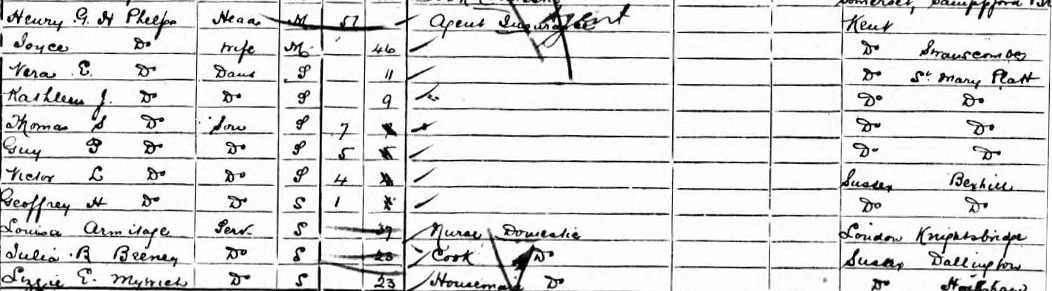 Somerset, Sampford
Henry G. H Phelps Head M 57 Agent Insurance Agent Kent
Joyce Do Wife M 46 Do Swanscombe
Vera E. Do Daur S 11 Do St Mary Platt
Kathleen J. Do Do S 9 Do Do
Thomas S Do Son S 7 Do Do
Guy P Do Do S 5 Do Do
Victor L Do Do S 4 Sussex Bexhill
Geoffrey H Do Do S 1 Do Do
Louisa Armitage Serv. S 39 Nurse Domestic London Knightsbridge
Julia B Do S 23 Cook Do Sussex Dallington
Lizzie E. Do S 23 Housemaid Do Do